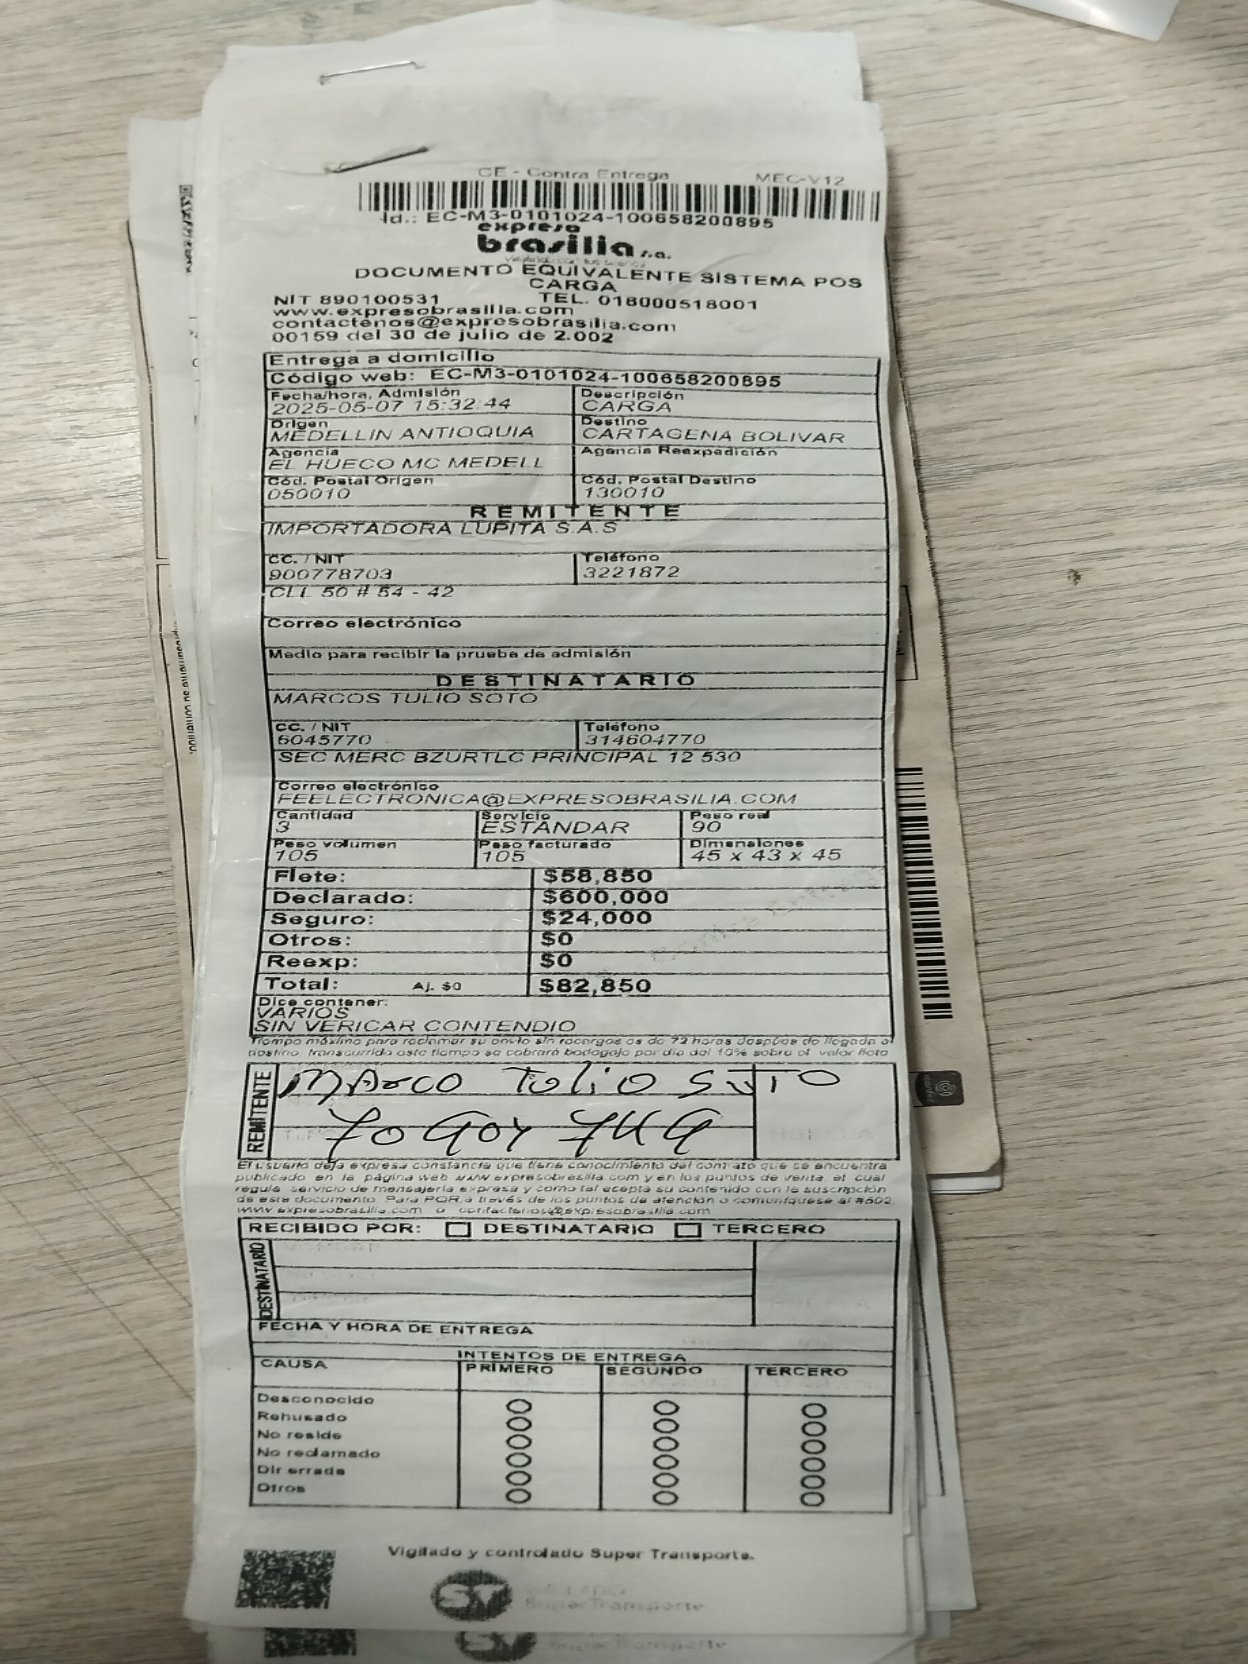 CE - Contra Entrega MEC-V12
Id.: EC-M3-0101024-100658200895
expreso
brasilia s.a.
DOCUMENTO EQUIVALENTE SISTEMA POS
CARGA
NIT 890100531 TEL. 018000518001
www.expresobrasilia.com
contactenos@expresobrasilia.com
00159 del 30 de julio de 2.002
Entrega a domicilio
Código web: EC-M3-0101024-100658200895
Fecha/hora, Admisión Descripción
2025-05-07 15:32:44 CARGA
Origen Destino
MEDELLIN ANTIOQUIA CARTAGENA BOLIVAR
Agencia Agencia Reexpedición
EL HUECO MC MEDELL
Cód. Postal Origen Cód. Postal Destino
050010 130010
REMITENTE
IMPORTADORA LUPITA S.A.S
CC. / NIT Teléfono
900778703 3221872
CLL 50 # 54 - 42
Correo electrónico
Medio para recibir la prueba de admisión
DESTINATARIO
MARCOS TULIO SOTO
CC. / NIT Teléfono
6045770 314604770
SEC MERC BZURTLC PRINCIPAL 12 530
Correo electrónico
FEELECTRONICA@EXPRESOBRASILIA.COM
Cantidad Servicio Peso real
3 ESTANDAR 90
Peso volumen Peso facturado Dimensiones
105 105 45 x 43 x 45
Flete: $58,850
Declarado: $600,000
Seguro: $24,000
Otros: $0
Reexp: $0
Total: Aj. $0 $82,850
Dice contener:
VARIOS
SIN VERICAR CONTENDIO
Tiempo máximo para reclamar su envio sin recargos es de 72 horas después de llegada al
destino, transcurrido este tiempo se cobrará bodegaje por dia del 10% sobre el valor flete
REMITENTE
MArco Tulio SoTO
El usuario deja expresa constancia que tiene conocimiento del contrato que se encuentra
publicado en la página web www.expresobrasilia.com y en los puntos de venta el cual
regula servicio de mensajería expresa y como tal acepta su contenido con la suscripción
de este documento. Para PQR a través de los puntos de atención o comuníquese al #502
www.expresobrasilia.com o contactenos@expresobrasilia.com
RECIBIDO POR: DESTINATARIO TERCERO
DESTINATARIO
FECHA Y HORA DE ENTREGA
INTENTOS DE ENTREGA
CAUSA PRIMERO SEGUNDO TERCERO
Desconocido
Rehusado
No reside
No reclamado
Dir errada
Otros
Vigilado y controlado Super Transporte.
SV VIGILADO
SuperTransporte
SuperTransporte